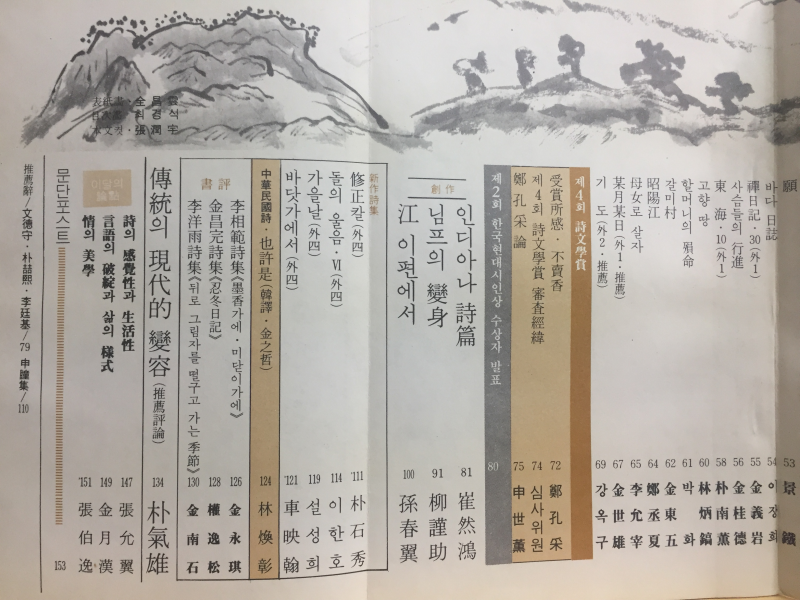 願 53 景 鐵
바다 日誌 54 이 장 희
禪日記·30(外1) 55 金 義 岩
사슴들의 行進 56 金 桂 德
東 海·10(外1) 58 朴 南 薰
고향 땅 60 林 炳 鎬
할머니의 殞命 61 박 화
갈미村 62 金 東 五
昭陽江 64 鄭 丞 夏
母女로 살자 65 李 允 宰
某月某日(外1·推薦) 67 金 世 雄
기 도(外2·推薦) 69 강 옥 구
제4회 詩文學賞
受賞所感·不賣香 72 鄭 孔 采
제4회 詩文學賞 審査經緯 74 심사위원
鄭孔采論 75 申 世 薰
제2회 한국현대시인상 수상자 발표 80
創作
인디아나 詩篇 81 崔然鴻
님프의 變身 91 柳謹助
江 이편에서 100 孫春翼
新作詩集
修正칼(外四) '111 朴 石 秀
돌의 울음·Ⅵ(外四) 114 이 한 호
가을날(外四) 119 설 성 희
바닷가에서(外四) '121 車 映 翰
中華民國詩·也許是(韓譯·金之哲) 124 林 煥 彰
書評
李相範詩集《墨香가에·미닫이가에》 126 金 永 琪
金昌完詩集《忍冬日記》 128 權 逸 松
李洋雨詩集《뒤로 그림자를 떨구고 가는 季節》 130 金 南 石
傳統의 現代的 變容(推薦評論) 134 朴氣雄
이달의 論點
詩의 感覺性과 生活性 147 張 允 翼
言語의 破綻과 삶의 樣式 149 金 月 漢
情의 美學 '151 張 伯 逸
문단포스트 153
推薦辭/文德守·朴喆熙·李廷基/79 申瞳集/110